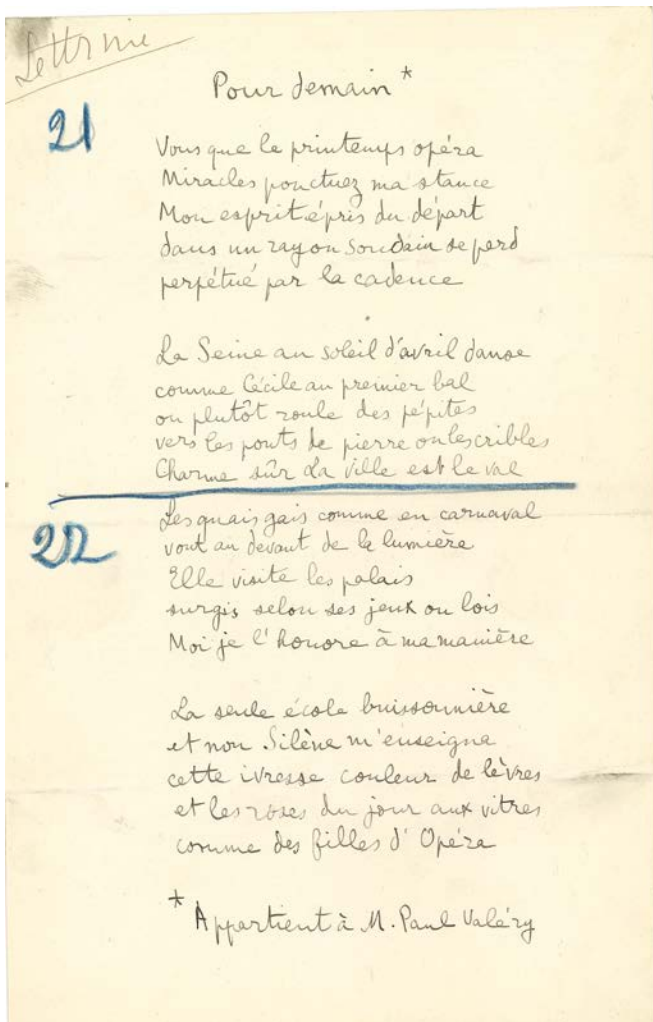 Lettrine
Pour demain *
21
Vous que le printemps opéra
Miracles ponctuez ma stance
Mon esprit épris du départ
dans un rayon soudain se perd
perpétué par la cadence
La Seine au soleil d'avril danse
comme Cécile au premier bal
ou plutôt roule des pépites
vers les ponts de pierre ou les cribles
Charme sûr La ville est le val
22
Les quais gais comme en carnaval
vont au devant de la lumière
Elle visite les palais
surgis selon ses jeux ou lois
Moi je l'honore à ma manière
La seule école buissonnière
et non Silène m'enseigna
cette ivresse couleur de lèvres
et les roses du jour aux vitres
comme des filles d'Opéra
* Appartient à M. Paul Valéry